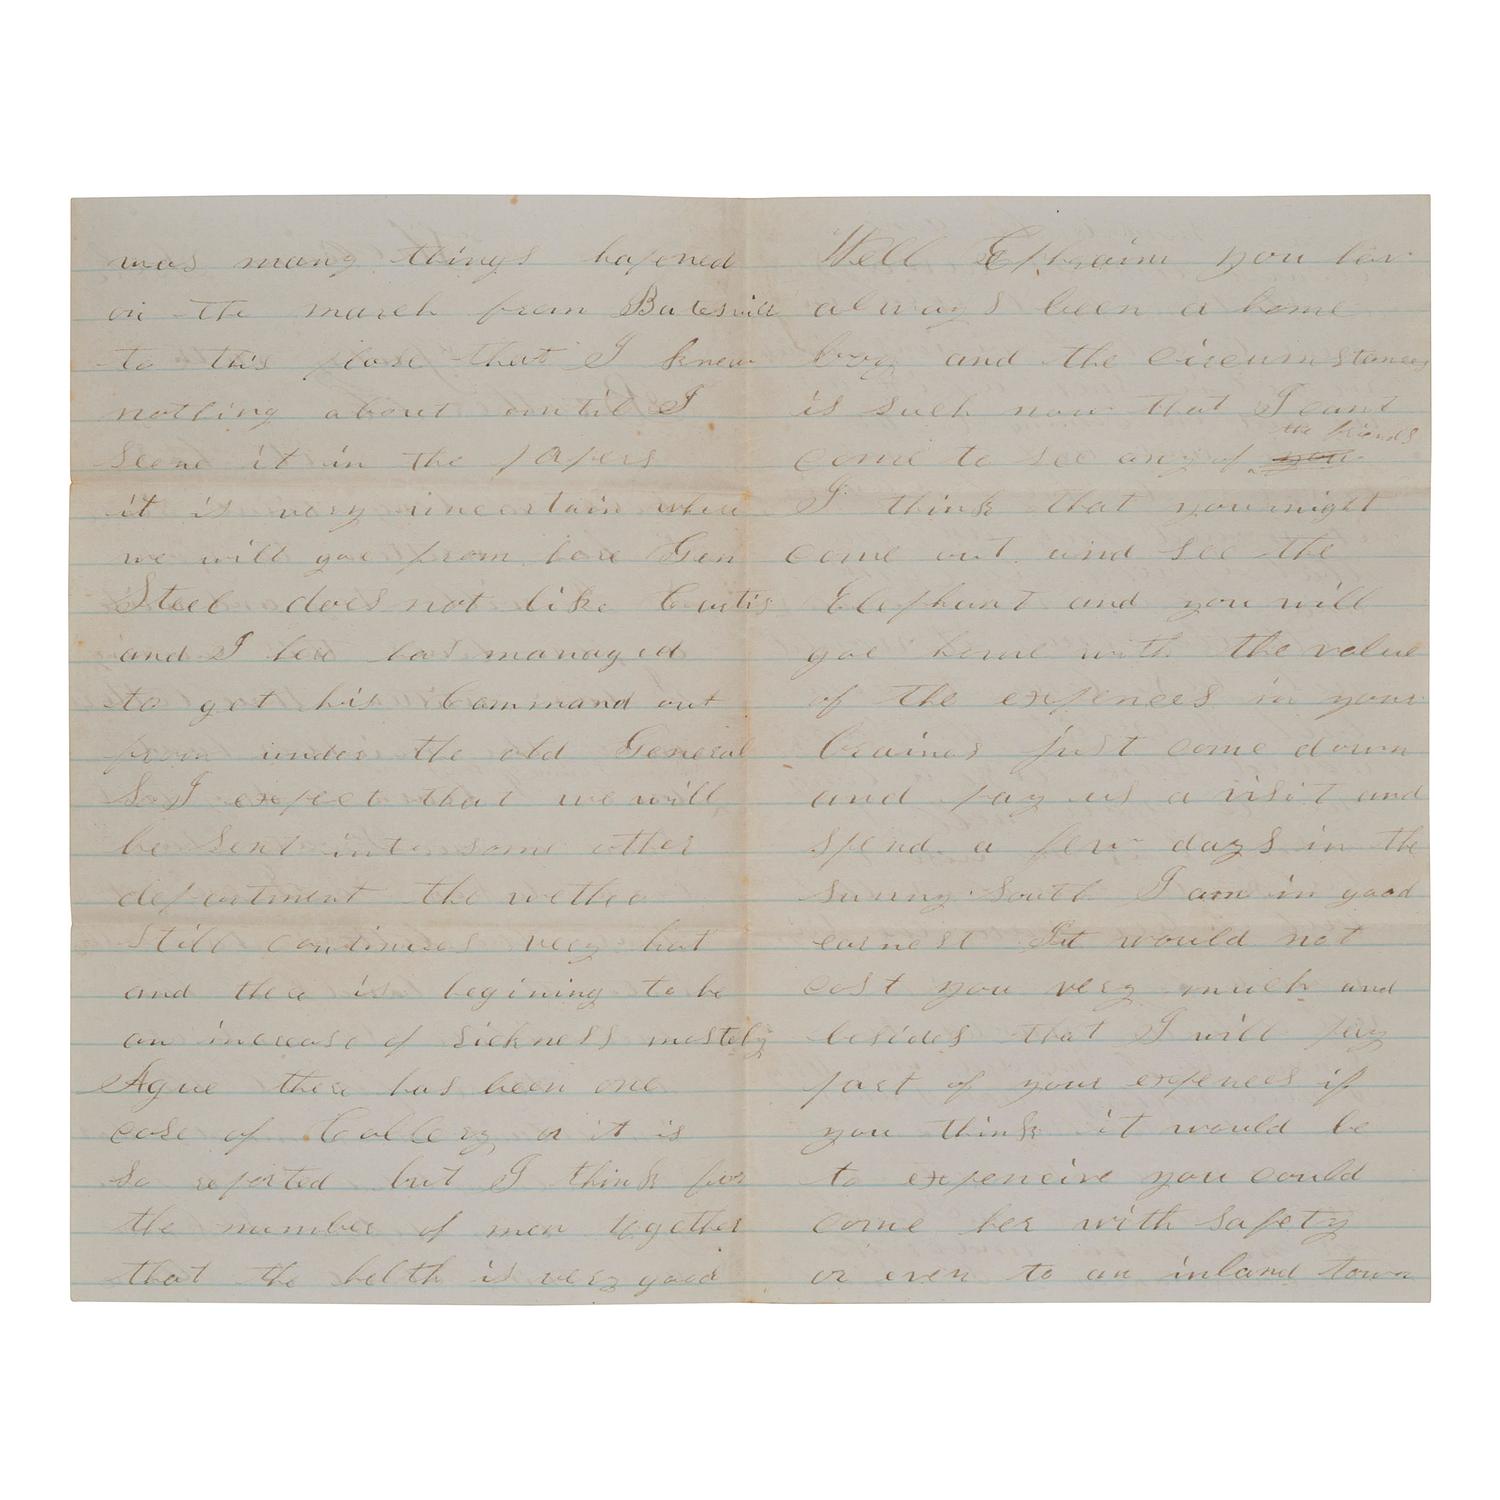 was many things hapened
on the march from Batesvill
to this plase that I knew
nothing about ountil I
seene it in the papers
it is very uncertain when
we will goe from here Gen
Steel does not like Curtis
and I hea has managed
to get his Command out
from under the old General
So I expect that we will
be Sent into some other
department the wether
still continues very hot
and thea is begining to be
an increase of sickness mostely
Ague thea has been one
case of Collery or it is
so reported but I think for
the number of men together
that the helth is very good
Well Ephraim you hav
always been a home
boy and the circumstances
is such now that I cant
the friends
come to see any of you
I think that you might
come out and see the
Elephant and you will
goe home with the value
of the expences in your
brains just come down
and pay us a visit and
spend a few days in the
sunny South I am in good
earnest It would not
cost you very much and
besides that I will pay
part of your expences if
you think it would be
to expencive you could
come her with safety
or even to an inland town